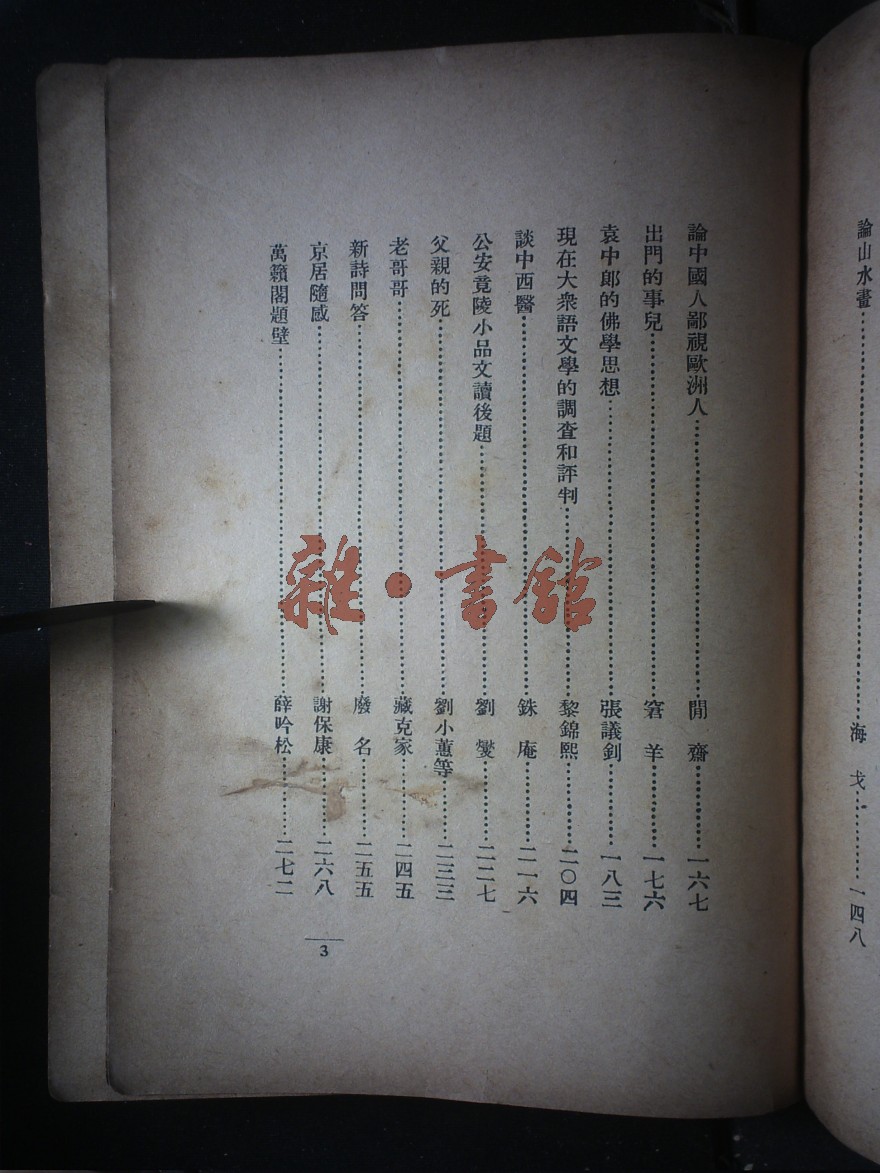 論山水畫……海戈……一四八
論中國人鄙視歐洲人……閒齋……一六七
出門的事兒……窘羊……一七六
袁中郎的佛學思想……張議釗……一八三
現在大衆語文學的調查和評判……黎錦熙……二〇四
談中西醫……銖庵……二一六
公安竟陵小品文讀後題……劉燮……二二七
父親的死……劉小蕙等……二三三
老哥哥……藏克家……二四五
新詩問答……廢名……二五五
京居隨感……謝保康……二六八
萬籟閣題壁……薛吟松……二七二
3
雜·書館